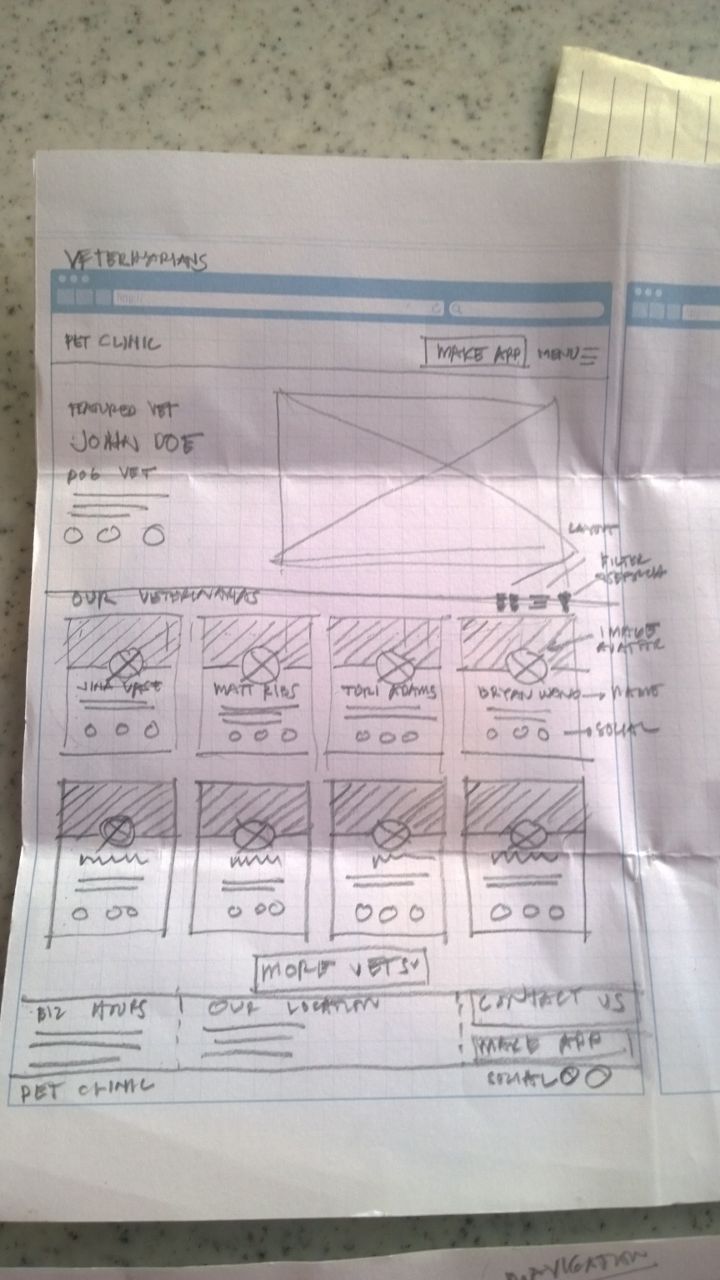 VETERINARIANS
PET CLINIC
MAKE APP
MENU
FEATURED VET
JOHN DOE
DOG VET
LAYOUT
FILTER
&SEARCH
OUR VETERINARIAS
IMAGE
AVATAR
MATT RIBS
TORI ADAMS
BRYAN WONG
NAME
SOCIAL
MORE VETS
BIZ HOURS
OUR LOCATION
CONTACT US
MAKE APP
PET CLINIC
SOCIAL
NAVIGATION